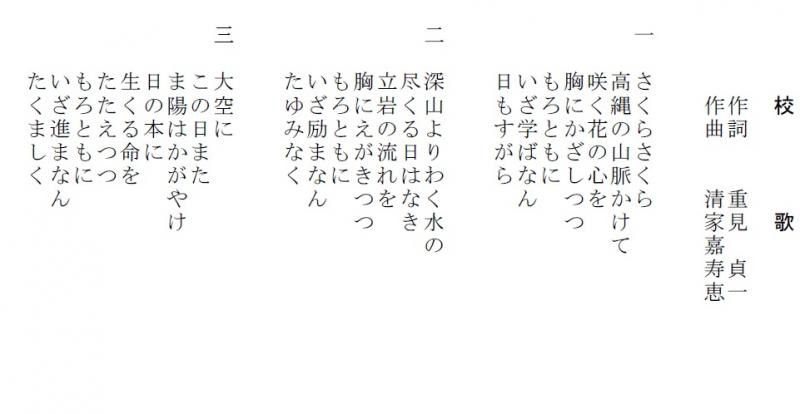 校歌
作詞 重見 貞一
作曲 清家嘉寿恵
一
さくらさくら
高縄の山脈かけて
咲く花の心を
胸にかざしつつ
もろともに
いざ学ばなん
日もすがら
二
深山よりわく水の
尽くる日はなき
立岩の流れを
胸にえがきつつ
もろともに
いざ励まなん
たゆみなく
三
大空に
この日また
ま陽はかがやけ
日の本に
生くる命を
たたえつつ
もろともに
いざ進まなん
たくましく